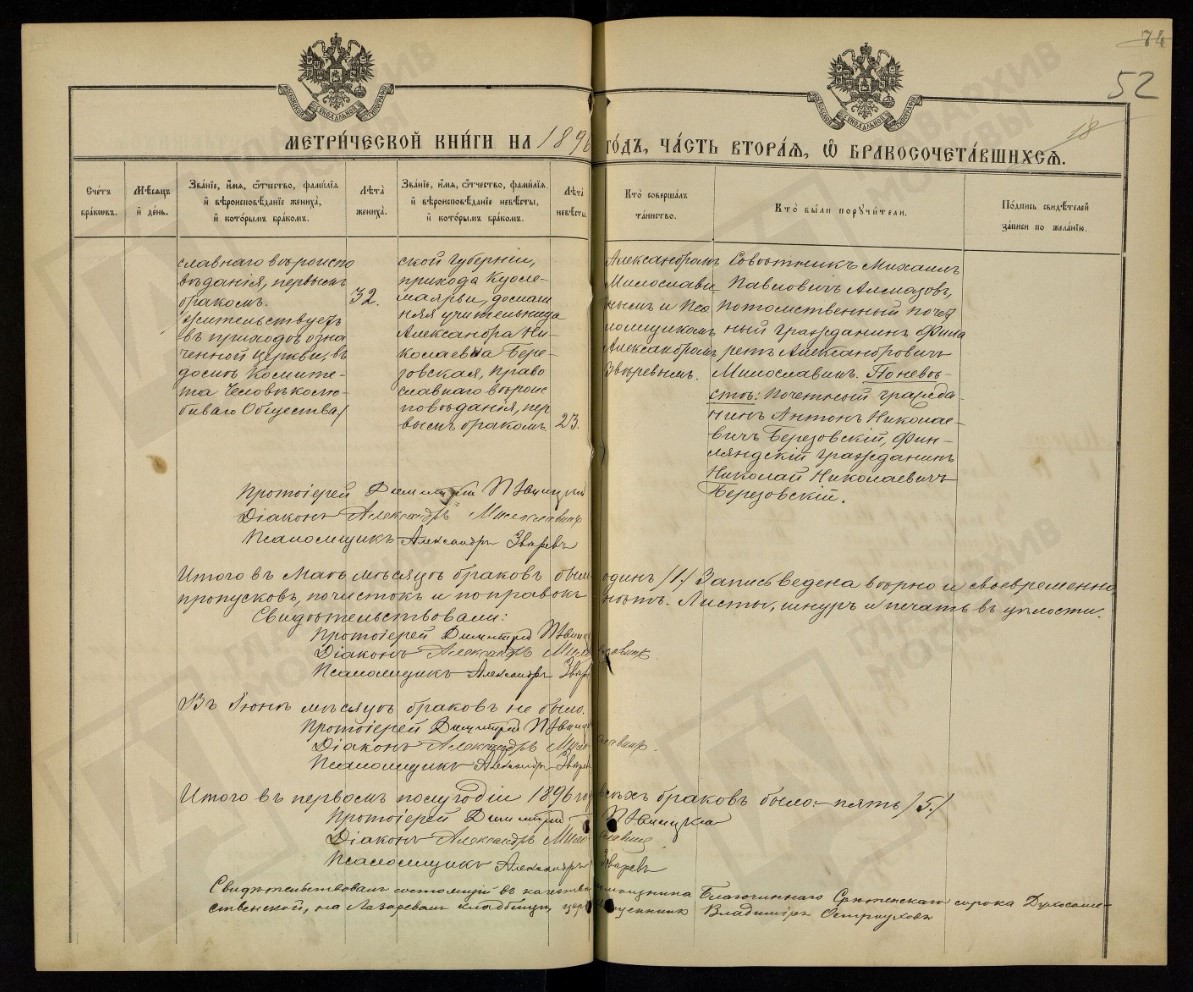 74
52
18
МЕТРИ́ЧЕСКОЙ КНИ́ГИ НА 1896 ГО́ДЪ, ЧА́СТЬ ВТОРА́Я, Ѿ БРАКОСОЧЕТА́ВШИХСЯ.
Сче́тъ бра́ковъ.
Мѣ́сяцъ и҆ де́нь.
Зва́нїе, и҆́мя, ѻ҆́тчество, фами́лїя и҆ вѣроисповѣ́данїе жениха̀, и҆ кото́рымъ бра́комъ.
Лѣ́та жениха̀.
Зва́нїе, и҆́мя, ѻ҆́тчество, фами́лїя и҆ вѣроисповѣ́данїе невѣ́сты, и҆ кото́рымъ бра́комъ.
Лѣ́та невѣ́сты.
Кто̀ соверша́лъ та́инство.
Кто̀ бы́ли порꙋчи́тели.
По́дпись свидѣ́телей за́писи по жела́нїю.
славнаго вѣроиспо
вѣданія, первымъ
бракомъ.
Жительствуетъ
въ приходѣ озна
ченной церкви, въ
домѣ Комите-
та Человѣколю-
биваго Общества/
32.
ской губерніи,
прихода Куоле-
маярви, домаш
няя учительница
Александра Ни-
колаевна Бере-
зовская, право
славнаго вѣроис
повѣданія, пер
вымъ бракомъ
23.
Александромъ
Милослави
нымъ и Пса
ломщикомъ
Александромъ
Звѣревымъ.
Совѣтникъ Михаилъ
Павловичъ Алмазовъ,
потомственный поче
ный гражданинъ Фила
ретъ Александровичъ
Милославинъ. По невѣ-
стѣ: Почетный гражда-
нинъ Антонъ Николае-
вичъ Березовскій, Фин-
ляндскій гражданинъ
Николай Николаевичъ
Березовскій.
Протоіерей Димитрій Пѣвницкій
Діаконъ Александръ Милославинъ
Псаломщикъ Александръ Звѣревъ
Итого въ Маѣ мѣсяцѣ браковъ былъ одинъ /1/ Запись ведена вѣрно и своевременно
пропусковъ, почистокъ и поправокъ нѣтъ. Листы, шнуръ и печать въ цѣлости.
Свидѣтельствовали:
Протоіерей Димитрій Пѣвниц
Діаконъ Александръ Милославинъ.
Псаломщикъ Александръ Звѣр
Въ Іюнѣ мѣсяцѣ браковъ не было.
Протоіерей Димитрій Пѣвниц
Діаконъ Александръ Милославинъ.
Псаломщикъ Александръ Звѣрев
Итого въ первомъ полугодіи 1896 год всѣхъ браковъ было:- пять /5./
Протоіерей Димитрій Пѣвницкій
Діаконъ Александръ Милославинъ
Псаломщикъ Александръ Звѣревъ
Свидѣтельствовалъ состоящій въ качествѣ помощника Благочиннаго Срѣтенскаго сорока Духосоше-
ственской, на Лазаревомъ кладбищѣ, церкви Священникъ Владиміръ Остроуховъ
ГЛАВАРХИВ
МОСКВЫ